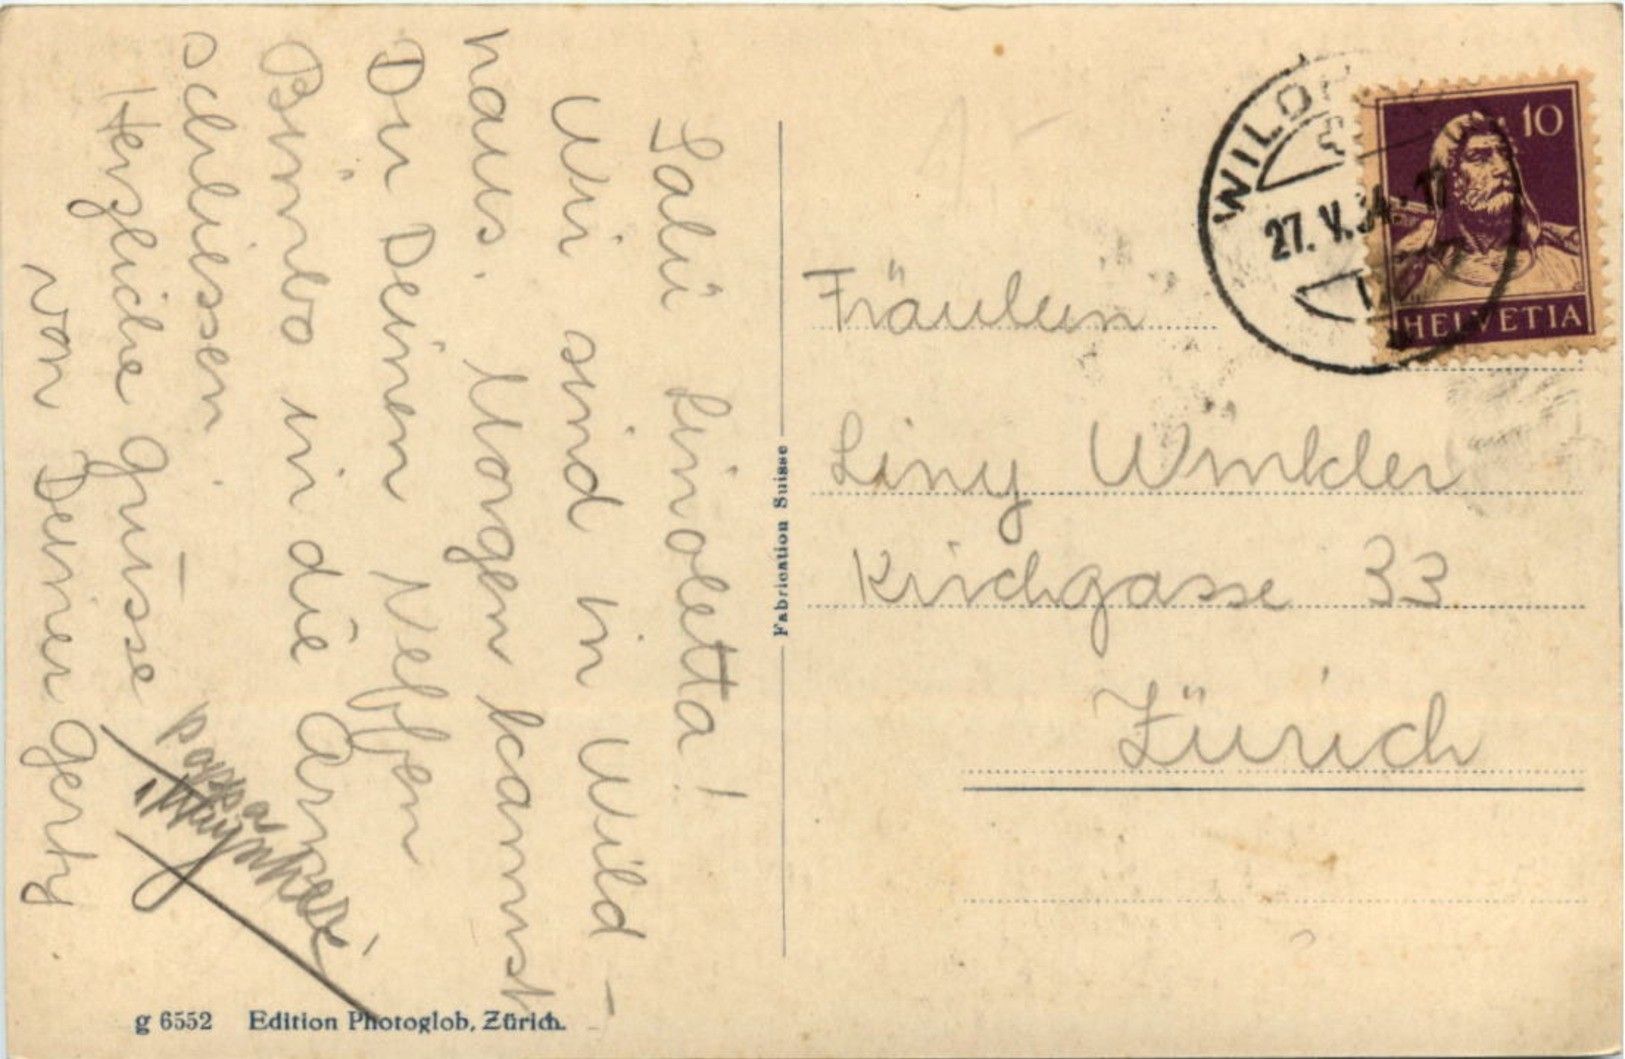 Salü Linoletta!
Wir sind in Wild-
haus. Morgen kannst
Du Deinen Neffen
Bimbo in die Arme
schliessen.
Herzliche Grüsse
von Deiner Gerty
poppa
Fabrication Suisse
g 6552 Edition Photoglob, Zürich.
27. V. 34.-17
10
HELVETIA
Fräulein
Liny Winkler
Kirchgasse 33
Zürich